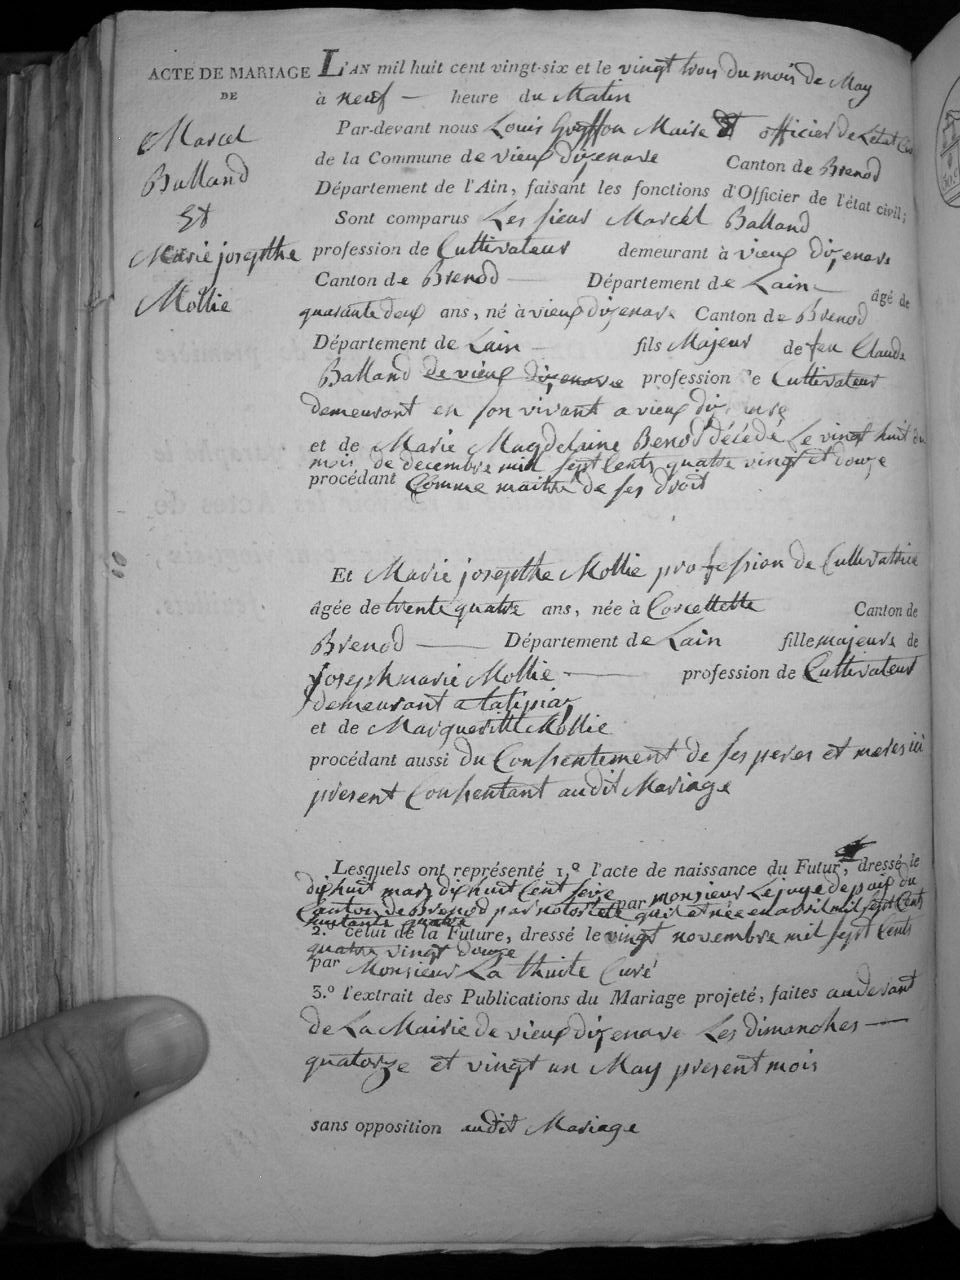 ACTE DE MARIAGE
DE
Marcel
Balland
Et
Marie josepthe
Mollie
L'AN mil huit cent vingt-six et le vingt trois du mois de May
à neuf — heure du Matin
Par-devant nous Louis Maire Et officier de Letat
de la Commune de vieux dizenave Canton de Brenod
Département de l'Ain, faisant les fonctions d'Officier de l'état civil;
Sont comparus Les sieur Marcel Balland
profession de Cultivateur demeurant à vieux dizenave
Canton de Brenod — Département de Lain — âgé de
quarante deux ans, né à vieux dizenave Canton de Brenod
Département de Lain — fils Majeur de feu Claude
Balland de vieux dizenave profession de Cultivateur
demeurant en son vivant a vieux
et de Marie Magdelaine décédé Le vingt huit du
mois de decembre mil sept Cents quatre vingt et douze
procédant Comme maitre de ses droit
Et Marie josepthe Mollie profession de Cultivatrice
âgée de trente quatre ans, née à Corcellette Canton de
Brenod — Département de Lain fille majeure de
Josephmarie Mollie — profession de Cultivateur
demeurant a
et de Margueritte Mollie
procédant aussi du Consentement de ses peres et meres ici
present Consentant audit Mariage
Lesquels ont représenté 1.º l'acte de naissance du Futur, dressé le
dix huit mars dix huit Cent seize par monsieur Le juge de paix du
Canton de Brenod par notoriété qui est née en avril mil sept Cents
quatre
2.º celui de la Future, dressé le vingt novembre mil sept Cents
quatre vingt douze
par Monsieur La thuite Curé
3.º l'extrait des Publications du Mariage projeté, faites au devant
de La Mairie de vieux dizenave Les dimanches —
quatorze et vingt un May present mois
sans opposition audit Mariage